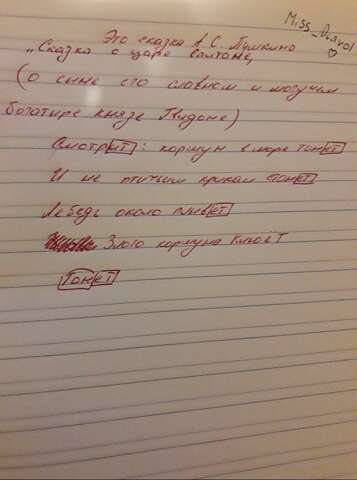 Miss_Dьявol
Это сказка А. С. Пушкина
„Сказка о царе Салтане,
(о сыне его славном и могучем
богатыре князе Гвидоне)
Смотрит: коршун в море тонет
И не птичьим криком стонет
Лебедь около плывет
Злого коршуна клюет
Тонет